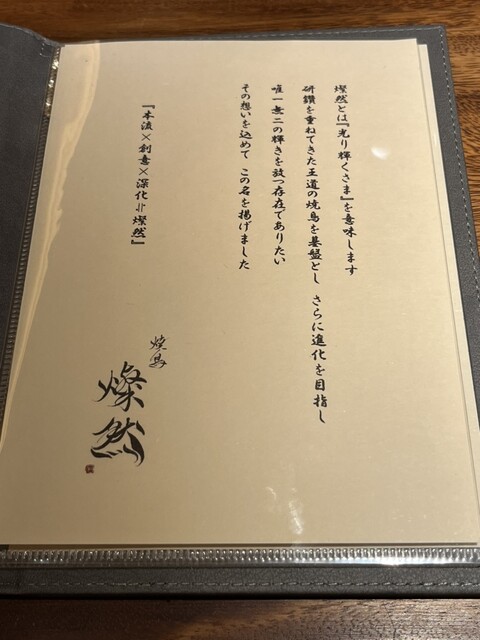 燦然とは『光り輝くさま』を意味します
研鑽を重ねてきた王道の焼鳥を基盤とし さらに進化を目指し
唯一無二の輝きを放つ存在でありたい
その想いを込めて この名を掲げました
『本流×創意×深化=燦然』
焼鳥
燦然